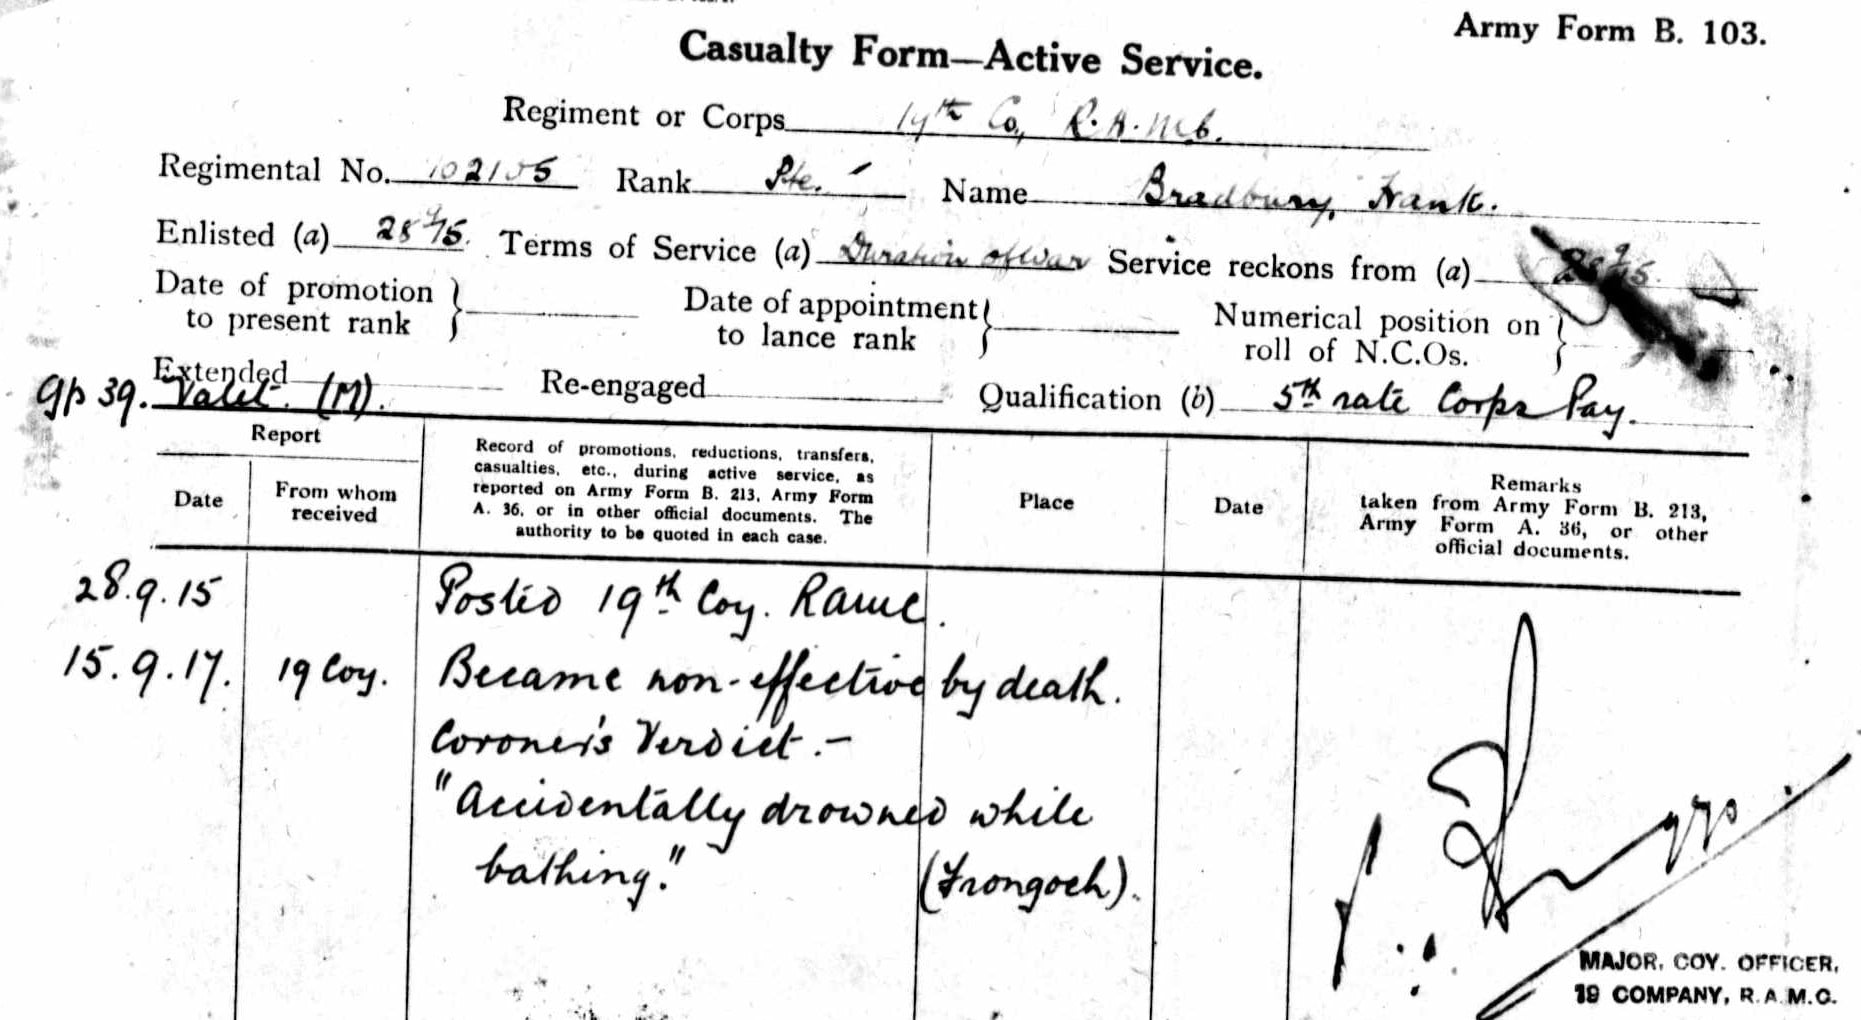 Army Form B. 103.
Casualty Form—Active Service.
Regiment or Corps 19th Co, R.A.M.C.
Regimental No. 102155 Rank Pte. Name Bradbury, Frank.
Enlisted (a) 28/9/15. Terms of Service (a) Duration of War Service reckons from (a) 28/9/15.
Date of promotion to present rank
Date of appointment to lance rank
Numerical position on roll of N.C.Os.
Extended Re-engaged Qualification (b) 5th rate Corps Pay.
Gp 39. Valet. (M).
Report
Date
From whom received
Record of promotions, reductions, transfers,
casualties, etc., during active service, as
reported on Army Form B. 213, Army Form
A. 36, or in other official documents. The
authority to be quoted in each case.
Place
Date
Remarks
taken from Army Form B. 213,
Army Form A. 36, or other
official documents.
28.9.15 Posted 19th Coy. RAMC.
15.9.17. 19 Coy. Became non-effective by death.
Coroner's Verdict:-
"Accidentally drowned while
bathing." (Frongoch).
MAJOR, COY. OFFICER,
19 COMPANY, R.A.M.C.